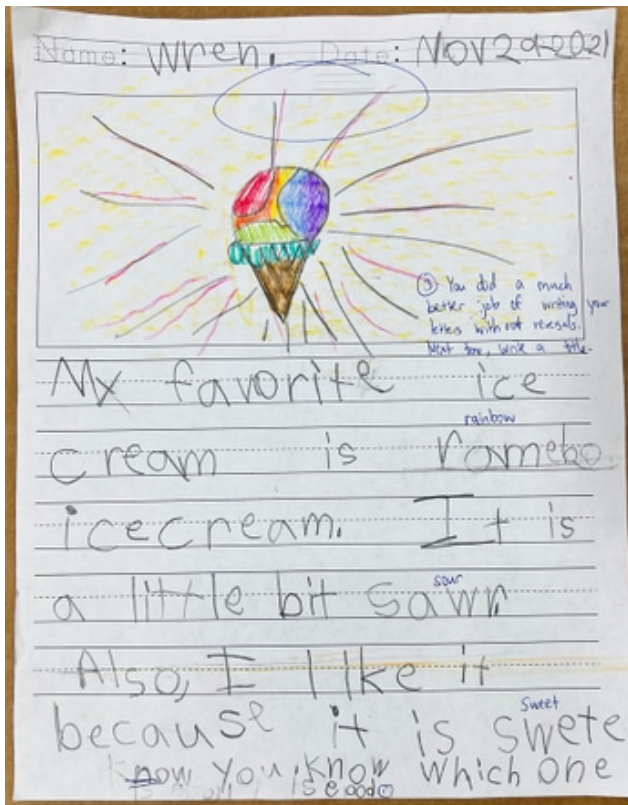 Name: Wren. Date: Nov 29 2021
③ You did a much
better job of writing your
letters without reversals.
Next time, write a title.
My favorite ice
rainbow
cream is ramebo
icecream. It is
sour
a little bit sawr.
Also, I like it
Sweet
because it is swete
now you know which one
is good